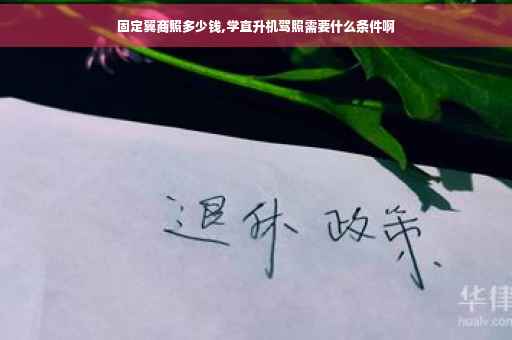 固定翼商照多少钱,学直升机驾照需要什么条件啊
退休 政策
华律
hualv.com